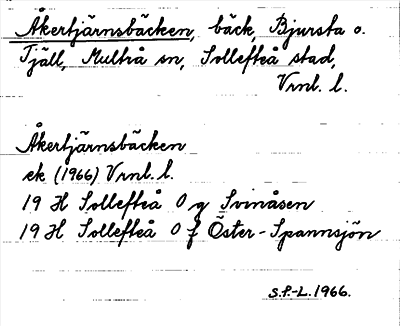 Åkertjärnsbäcken, bäck, Bjursta o.
Fjäll, Multrå sn, Sollefteå stad,
Vrnl. l.
Åkertjärnsbäcken
ek (1966) Vrnl. l.
19 H Sollefteå 0 g Svinåsen
19 H Sollefteå 0 f Öster-Spannsjön
S.P.-L. 1966.